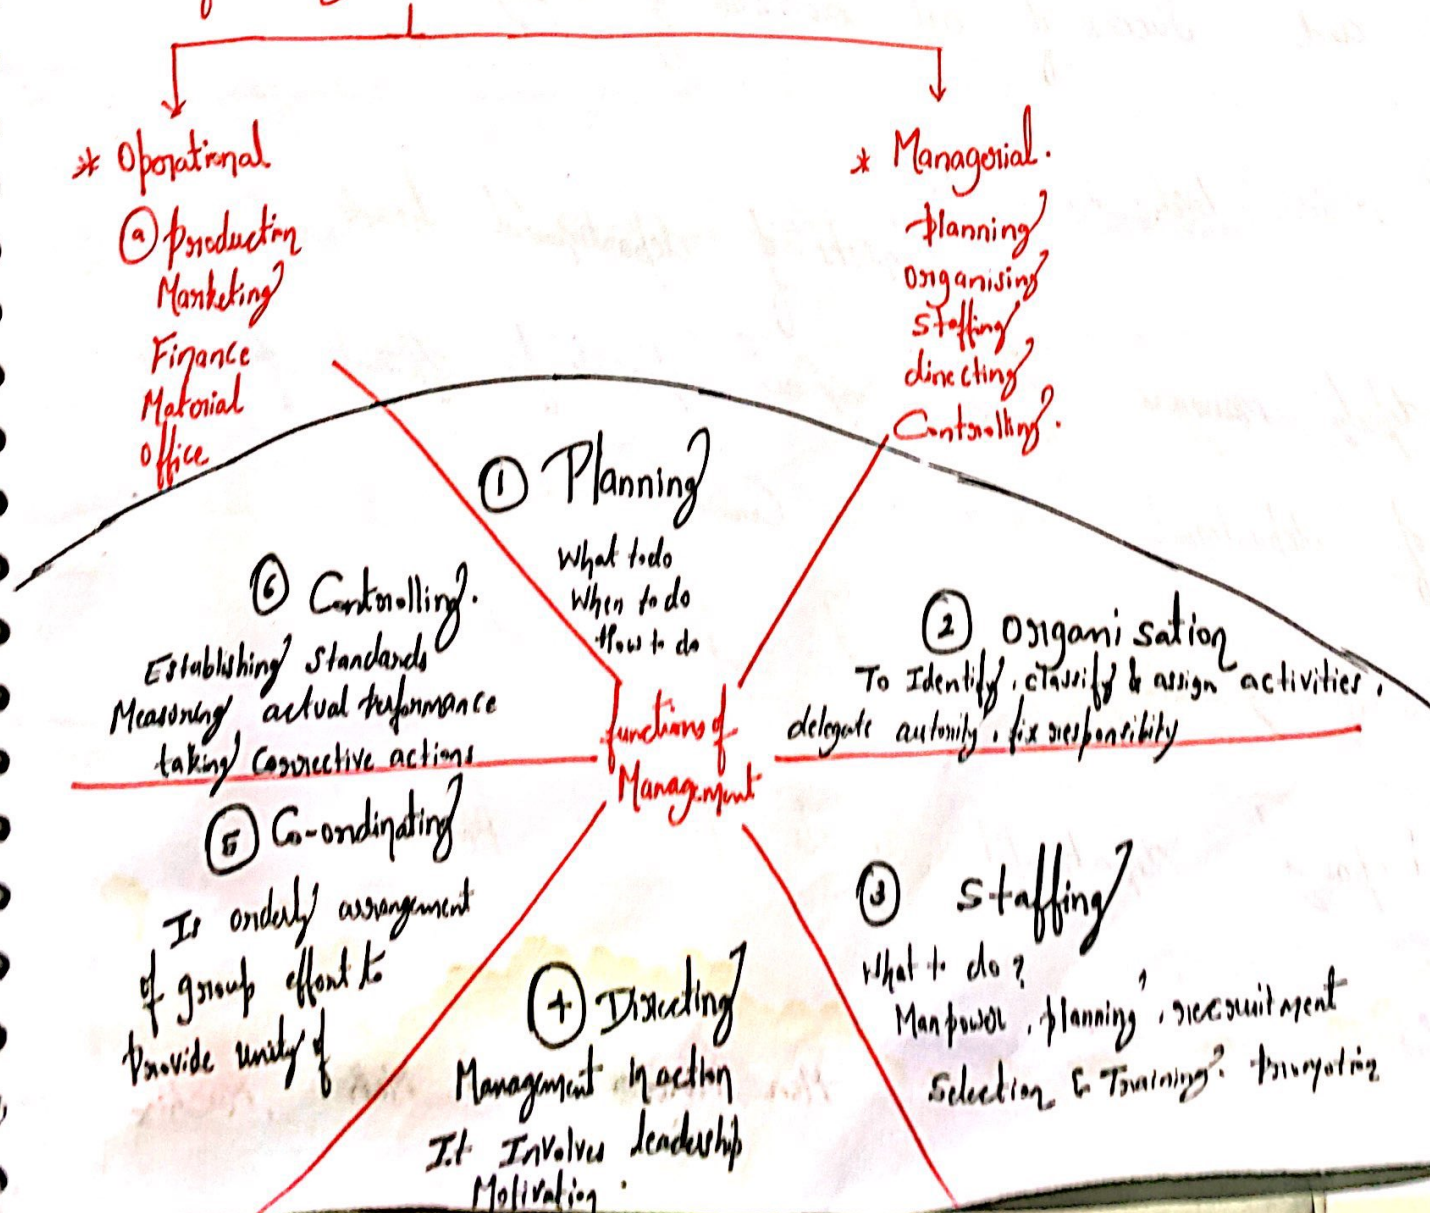 * Operational
ⓐ Production
Marketing
Finance
Material
Office
* Managerial.
Planning
Organising
Staffing
directing
Controlling.
① Planning
What to do
When to do
How to do
② Organisation
To Identify, classify & assign activities,
delegate autority, fix responsibility
③ Staffing
What to do?
Manpower, planning, recruitment
Selection & Training. Promotion
④ Directing
Management In action
It Involves leadership
Motivation.
⑤ Co-ordinating
Is orderly arrangement
of group effort to
Provide unity of
⑥ Controlling.
Establishing Standards
Measuring actual performance
taking Corrective actions
functions of
Management